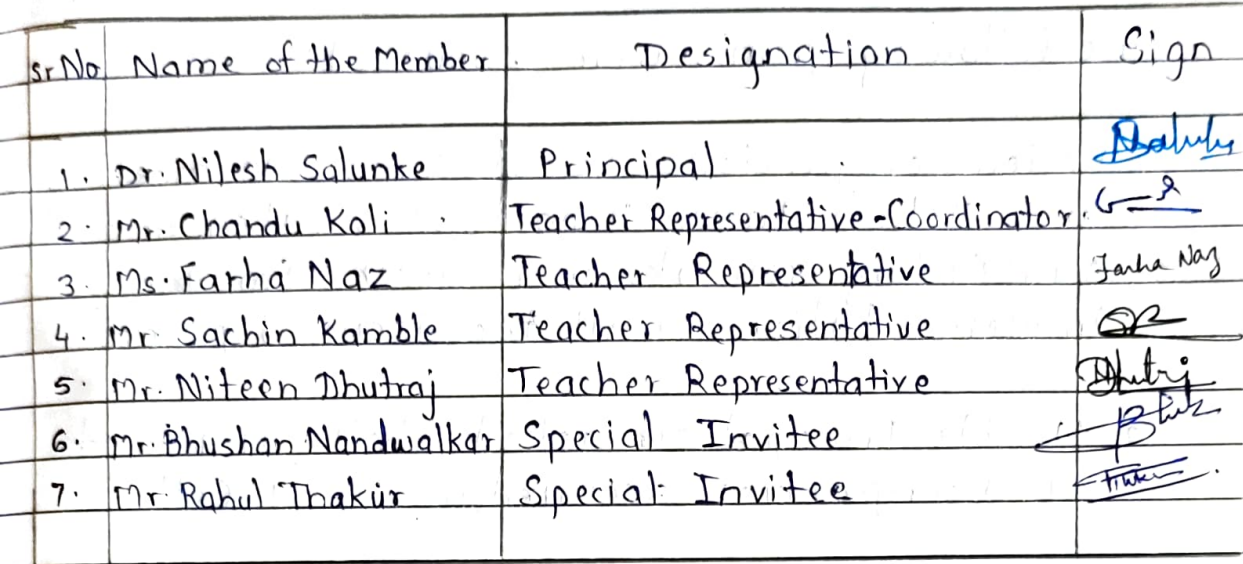 Sr No Name of the Member Designation Sign
1. Dr. Nilesh Salunke Principal
2. Mr. Chandu Koli Teacher Representative-Coordinator.
3. Ms. Farha Naz Teacher Representative Farha Naz
4. Mr. Sachin Kamble Teacher Representative
5. Mr. Niteen Dhutraj Teacher Representative
6. Mr. Bhushan Nandwalkar Special Invitee
7. Mr. Rahul Thakur Special Invitee